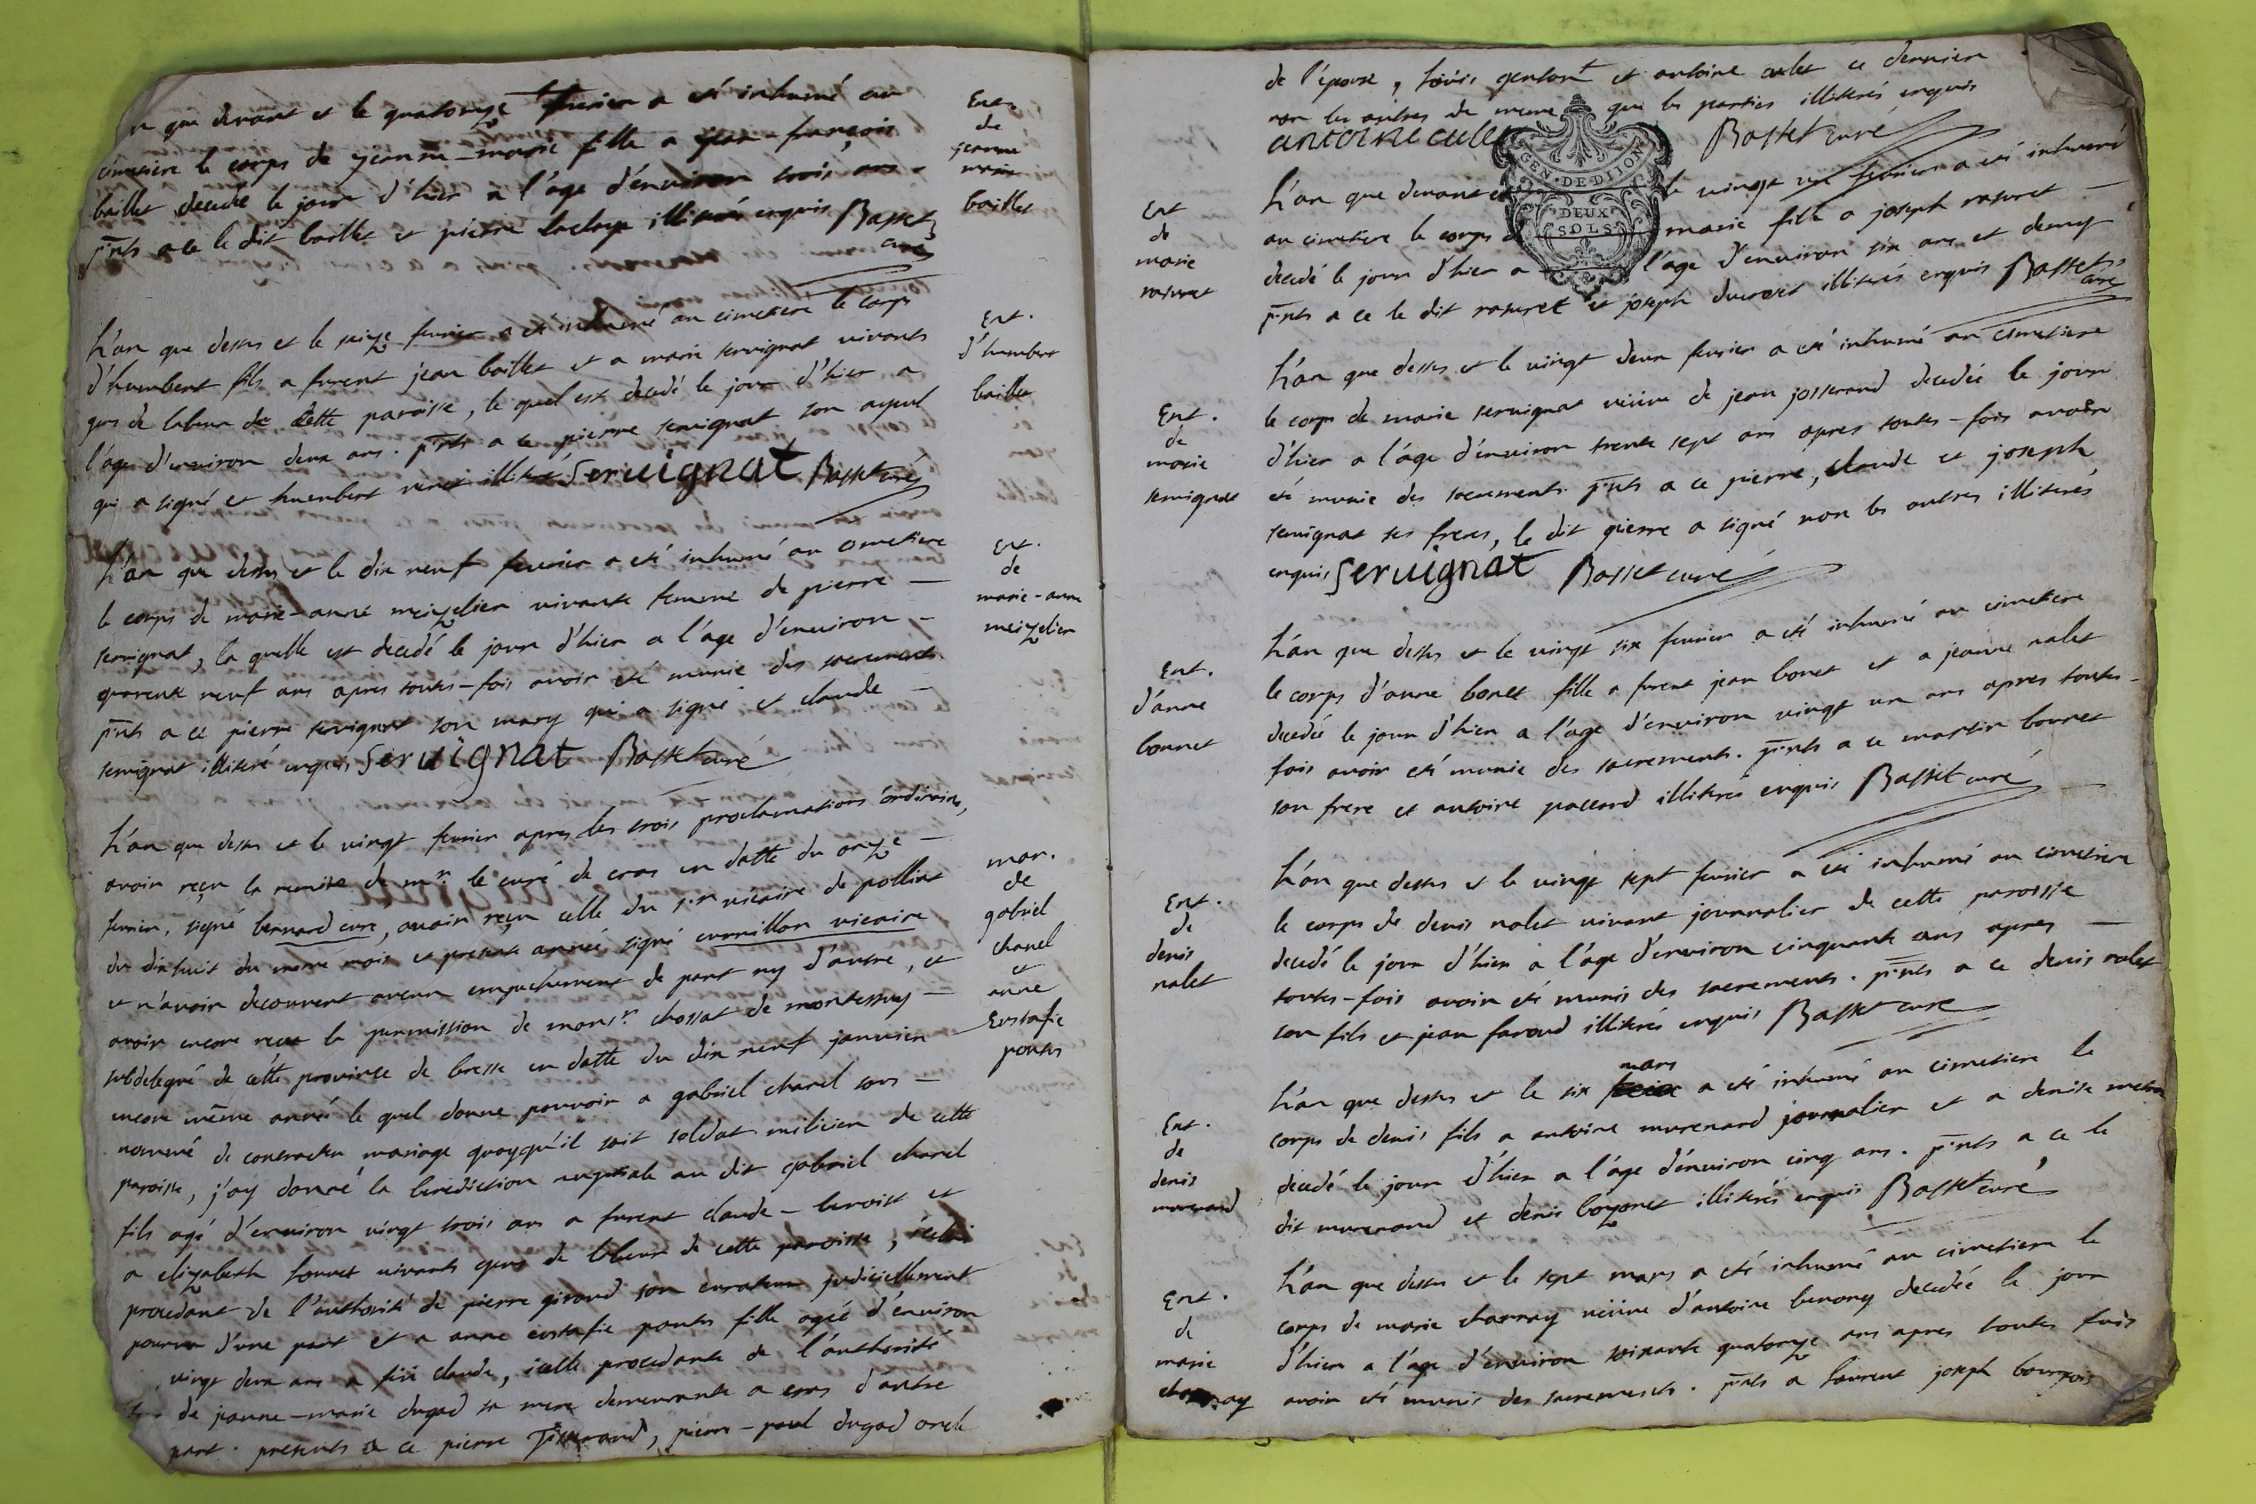 n que devant et le quatorze fevrier a eté inhumé au
cimetiere le corps de jeanne-marie fille a jean-françois
baillet decedé le jour d'hier a l'age d'environ trois ans
p̄nts a ce le dit baillet et pierre illiterés enquis Basset
curé
Ent.
de
jeanne
marie
baillet
L'an que dessus et le seize fevrier a eté inhumé au cimetiere le corps
d'humbert fils a furent jean baillet et a marie servignat vivants
gens de labeur de cette paroisse, le quel est decedé le jour d'hier a
l'age d'environ deux ans. p̄nts a ce pierre servignat son ayeul
qui a signé et humbert illiteré Servignat Basset curé
Ent.
d'humbert
baillet
L'an que dessus et le dix neuf fevrier a eté inhumé au cimetiere
le corps de marie-anne meizelier vivante femme de pierre
servignat, la quelle est decedé le jour d'hier a l'age d'environ
quarente neuf ans apres toutes-fois avoir eté munie des sacrements
p̄nts a ce pierre servignat son mary qui a signé et claude
servignat illiteré enquis Servignat Basset curé
Ent.
de
marie-anne
meizelier
L'an que dessus et le vingt fevrier apres les trois proclamations ordinaires,
avoir reçu la remise de mr. le curé de cras en datte du onze
fevrier, signé bernard curé, avoir reçu celle du sr. vicaire de polliat
du dixhuit du meme mois et presente année signé cuvillon vicaire
et n'avoir decouvert aucun empechement de part ny d'autre, et
avoir encore reçu la permission de monsr. chossat de montessuy
subdelegué de cette province de bresse en datte du dix neuf janvier
encore même année le quel donne pouvoir a gabriel chanel sous-
nommé de contracter mariage quoyqu'il soit soldat milicien de cette
paroisse, j'ay donné la benediction nuptiale au dit gabriel chanel
fils agé d'environ vingt trois ans a furent claude-benoist et
a elizabeth vivants gens de labeur de cette paroisse, icelui
procedant de l'authorité de pierre giraud son curateur judiciellement
pourvu d'une part et a anne eustasie pontus fille agée d'environ
vingt deux ans a feu claude, icelle procedante de l'authorité
de jeanne-marie dugad sa mere demeurante a cras d'autre
part. presents a ce pierre, pierre-paul dugad oncle
mar.
de
gabriel
chanel
et
anne
Eustasie
pontus
de l'épouse, et antoine culet ce dernier
non les autres de meme que les parties illiterés enquis
antoine culet Basset curé
L'an que devant et le vingt un fevrier a eté inhumé
au cimetiere le corps de marie fille a joseph ravuret
decedé le jour d'hier a l'age d'environ six ans et demy
p̄nts a ce le dit ravuret et joseph illiterés enquis Basset
curé
GEN·DE·DIJON
DEUX
SOLS
Ent
de
marie
ravuret
L'an que dessus et le vingt deux fevrier a eté inhumé au cimetiere
le corps de marie servignat veuve de jean josserand decedée le jour
d'hier a l'age d'environ trente sept ans apres toutes-fois avoir
eté munie des sacrements p̄nts a ce pierre, claude et joseph
servignat ses freres, le dit pierre a signé non les autres illiterés
enquis Servignat Basset curé
Ent.
de
marie
servignat
L'an que dessus et le vingt six fevrier a eté inhumé au cimetiere
le corps d'anne bonet fille a furent jean bonet et a jeanne nalet
decedée le jour d'hier a l'age d'environ vingt un ans apres toutes-
fois avoir eté munie des sacrements. p̄nts a ce martin bonnet
son frere et antoine paccard illiterés enquis Basset curé
Ent.
d'anne
bonnet
L'an que dessus et le vingt sept fevrier a eté inhumé au cimetiere
le corps de denis nalet vivant journalier de cette paroisse
decedé le jour d'hier a l'age d'environ cinquante ans apres
toutes-fois avoir eté munis des sacrements. p̄nts a ce denis nalet
son fils et jean faroud illiterés enquis Basset curé
Ent.
de
denis
nalet
L'an que dessus et le six mars a eté inhumé au cimetiere le
corps de denis fils a antoine murenard journalier et a denise
decedé le jour d'hier a l'age d'environ cinq ans. p̄nts a ce le
dit murenard et denis bozonet illiterés enquis Basset curé
Ent.
de
denis
murenard
L'an que dessus et le sept mars a eté inhumé au cimetiere le
corps de marie charnay veuve d'antoine benony decedée le jour
d'hier a l'age d'environ soixante quatorze ans apres toutes fois
avoir eté munis des sacrements. p̄nts a laurent joseph bourgois
Ent.
de
marie
charnay